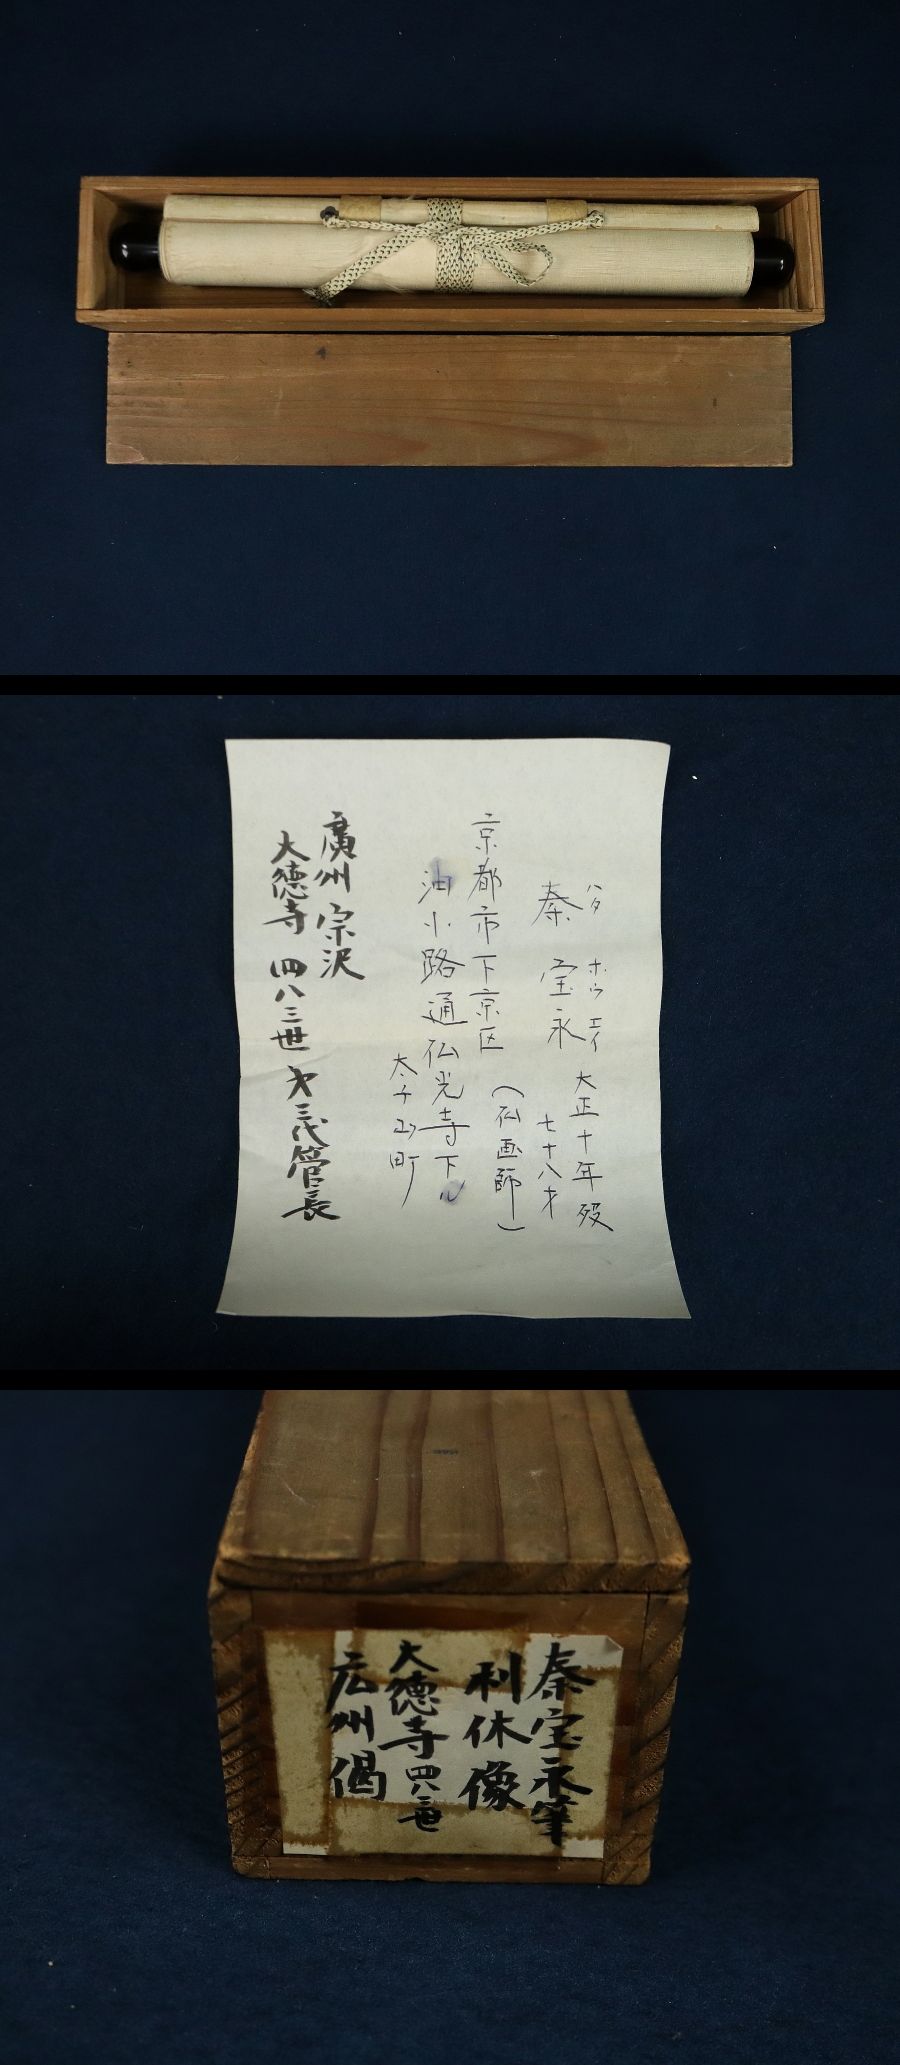 ハタ ホウ エイ
秦 宝永
大正十年歿
七十八才
(仏画師)
京都市下京区
油小路通仏光寺下ル
太子山町
廣州宗沢
大徳寺 四八三世 才三代管長
秦宝永筆
利休像
大徳寺四八三世
広州偈